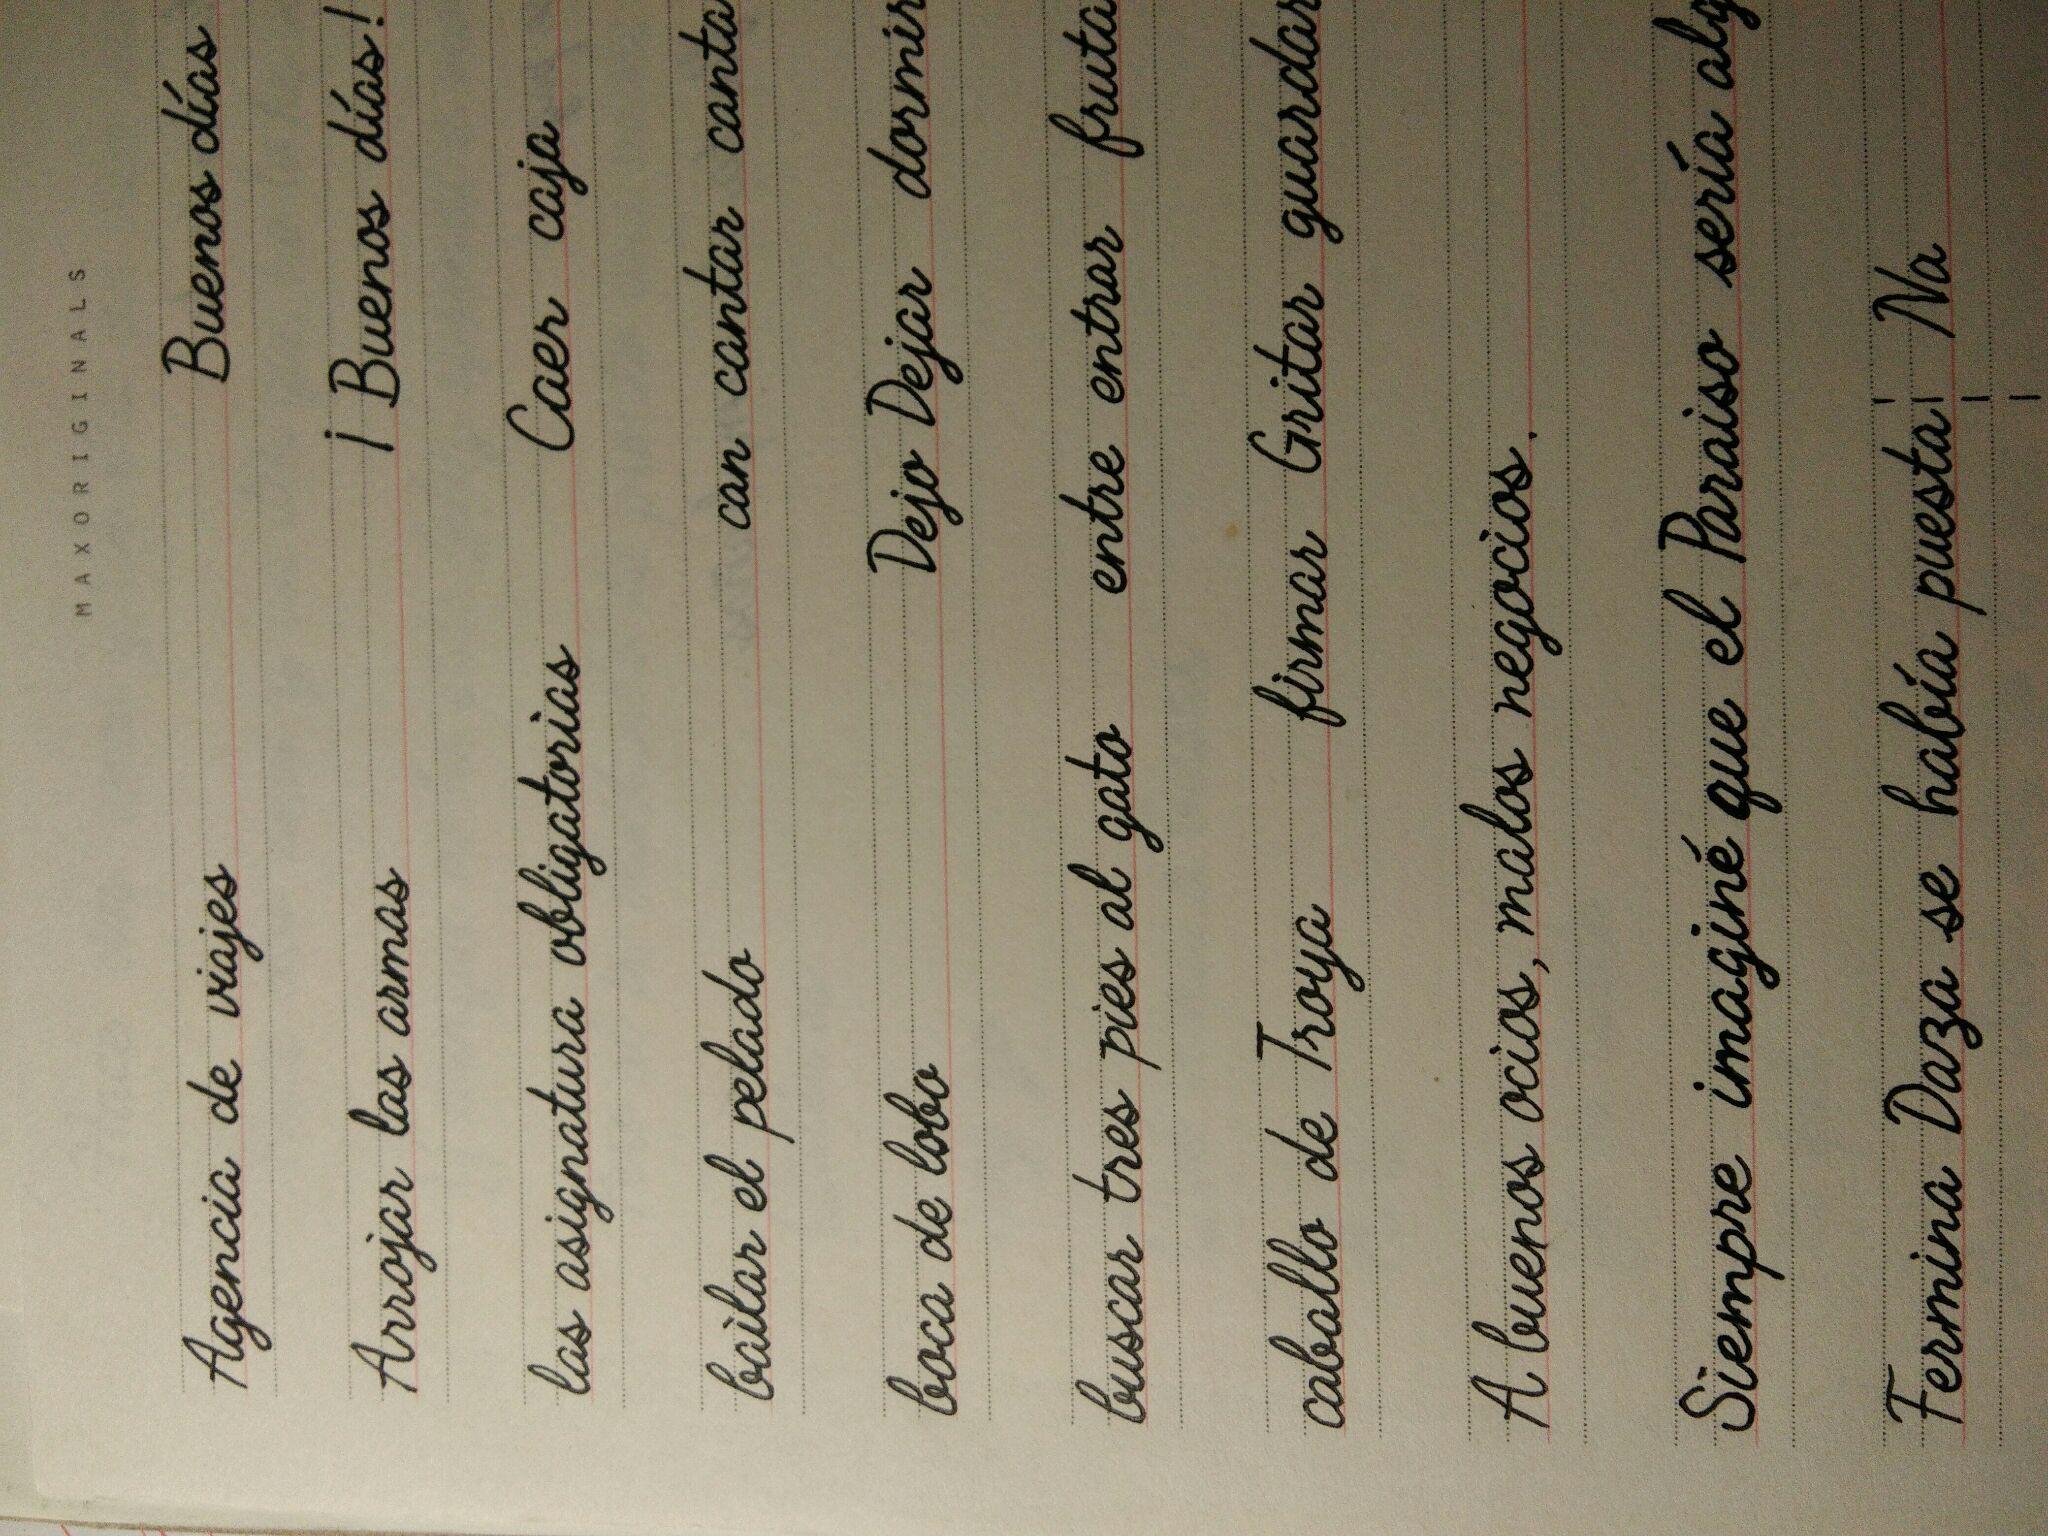 MAXORIGINALS
Agencia de viajes Buenos días
Arrojar las armas ¡Buenos días!
las asignatura obligatorias Caer caja
bailar el pelado can cantar canta
boca de lobo Dejo Dejar dormir
buscar tres pies al gato entre entrar fruta
caballo de Troya firmar Gritar guardar
A buenos ocios, malos negocios.
Siempre imaginé que el Paraiso sería alg
Fermina Daza se había puesta Na